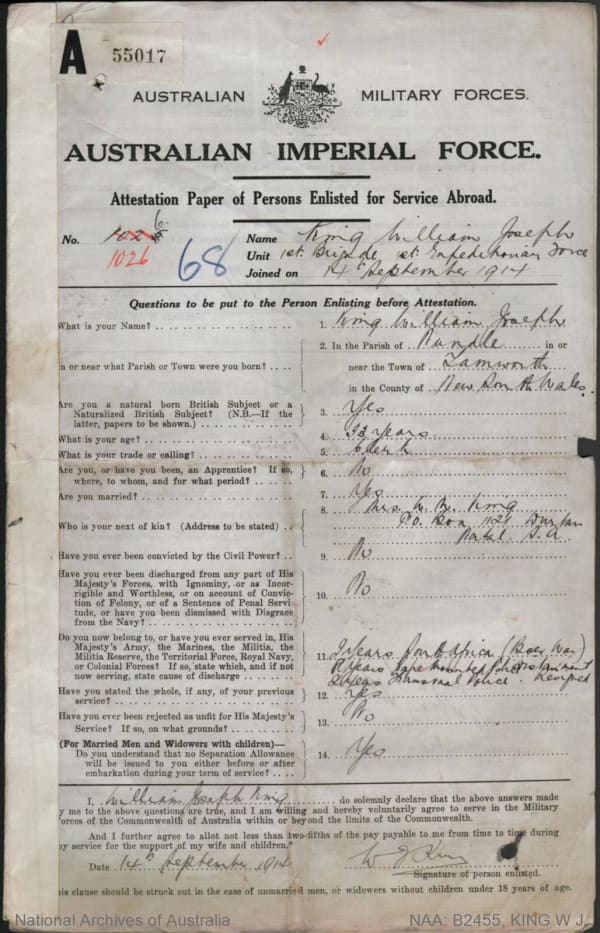 A 55017
AUSTRALIAN MILITARY FORCES.
AUSTRALIAN IMPERIAL FORCE.
Attestation Paper of Persons Enlisted for Service Abroad.
No. 1026 68 Name King William Joseph
1026 Unit 1st. Brigade 1st. Expeditionary Force
Joined on 14th September 1914
Questions to be put to the Person Enlisting before Attestation.
What is your Name? 1. King William Joseph
2. In the Parish of in or
n or near what Parish or Town were you born? near the Town of Tamworth
in the County of New South Wales.
Are you a natural born British Subject or a
Naturalized British Subject? (N.B.—If the 3. Yes
latter, papers to be shown.)
What is your age? 4. 33 years
What is your trade or calling? 5. Clerk
Are you, or have you been, an Apprentice? If so, 6. No
where, to whom, and for what period?
Are you married? 7. Yes
8. Mrs. King
Who is your next of kin? (Address to be stated) P.O. Box Durban
Natal S.A
Have you ever been convicted by the Civil Power? 9. No
Have you ever been discharged from any part of His
Majesty's Forces, with Ignominy, or as Incor-
rigible and Worthless, or on account of Convic- 10. No
tion of Felony, or of a Sentence of Penal Servi-
tude, or have you been Dismissed with Disgrace
from the Navy?
Do you now belong to, or have you ever served in, His
Majesty's Army, the Marines, the Militia, the 11. 2 years South Africa (Boer War)
Militia Reserve, the Territorial Force, Royal Navy, years Cape Mounted
or Colonial Forces? If so, state which, and if not years Transvaal Police. Resigned
now serving, state cause of discharge
Have you stated the whole, if any, of your previous 12. Yes
service?
Have you ever been rejected as unfit for His Majesty's 13. No
Service? If so, on what grounds?
(For Married Men and Widowers with children)—
Do you understand that no Separation Allowance 14. Yes
will be issued to you either before or after
embarkation during your term of service?
I, William Joseph King do solemnly declare that the above answers made
y me to the above questions are true, and I am willing and hereby voluntarily agree to serve in the Military
Forces of the Commonwealth of Australia within or beyond the limits of the Commonwealth.
And I further agree to allot not less than two-fifths of the pay payable to me from time to time during
my service for the support of my wife and children.*
Date 14th September 1914 W J King
Signature of person enlisted.
his clause should be struck out in the case of unmarried men, or widowers without children under 18 years of age.
National Archives of Australia NAA: B2455, KING W J